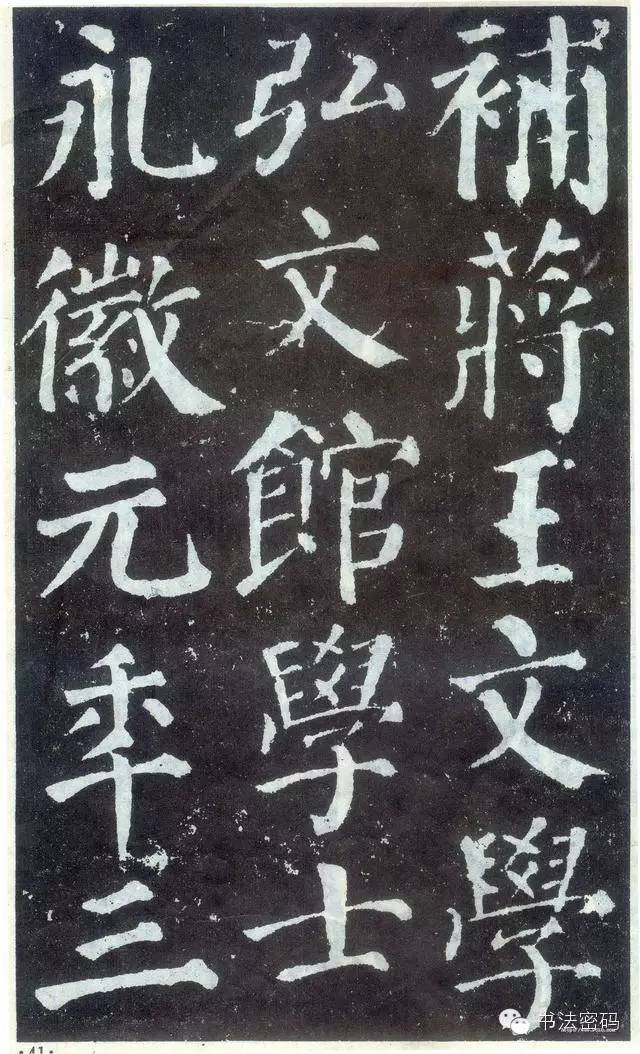 補蔣王文學
弘文館學士
永徽元年三
书法密码
·41·